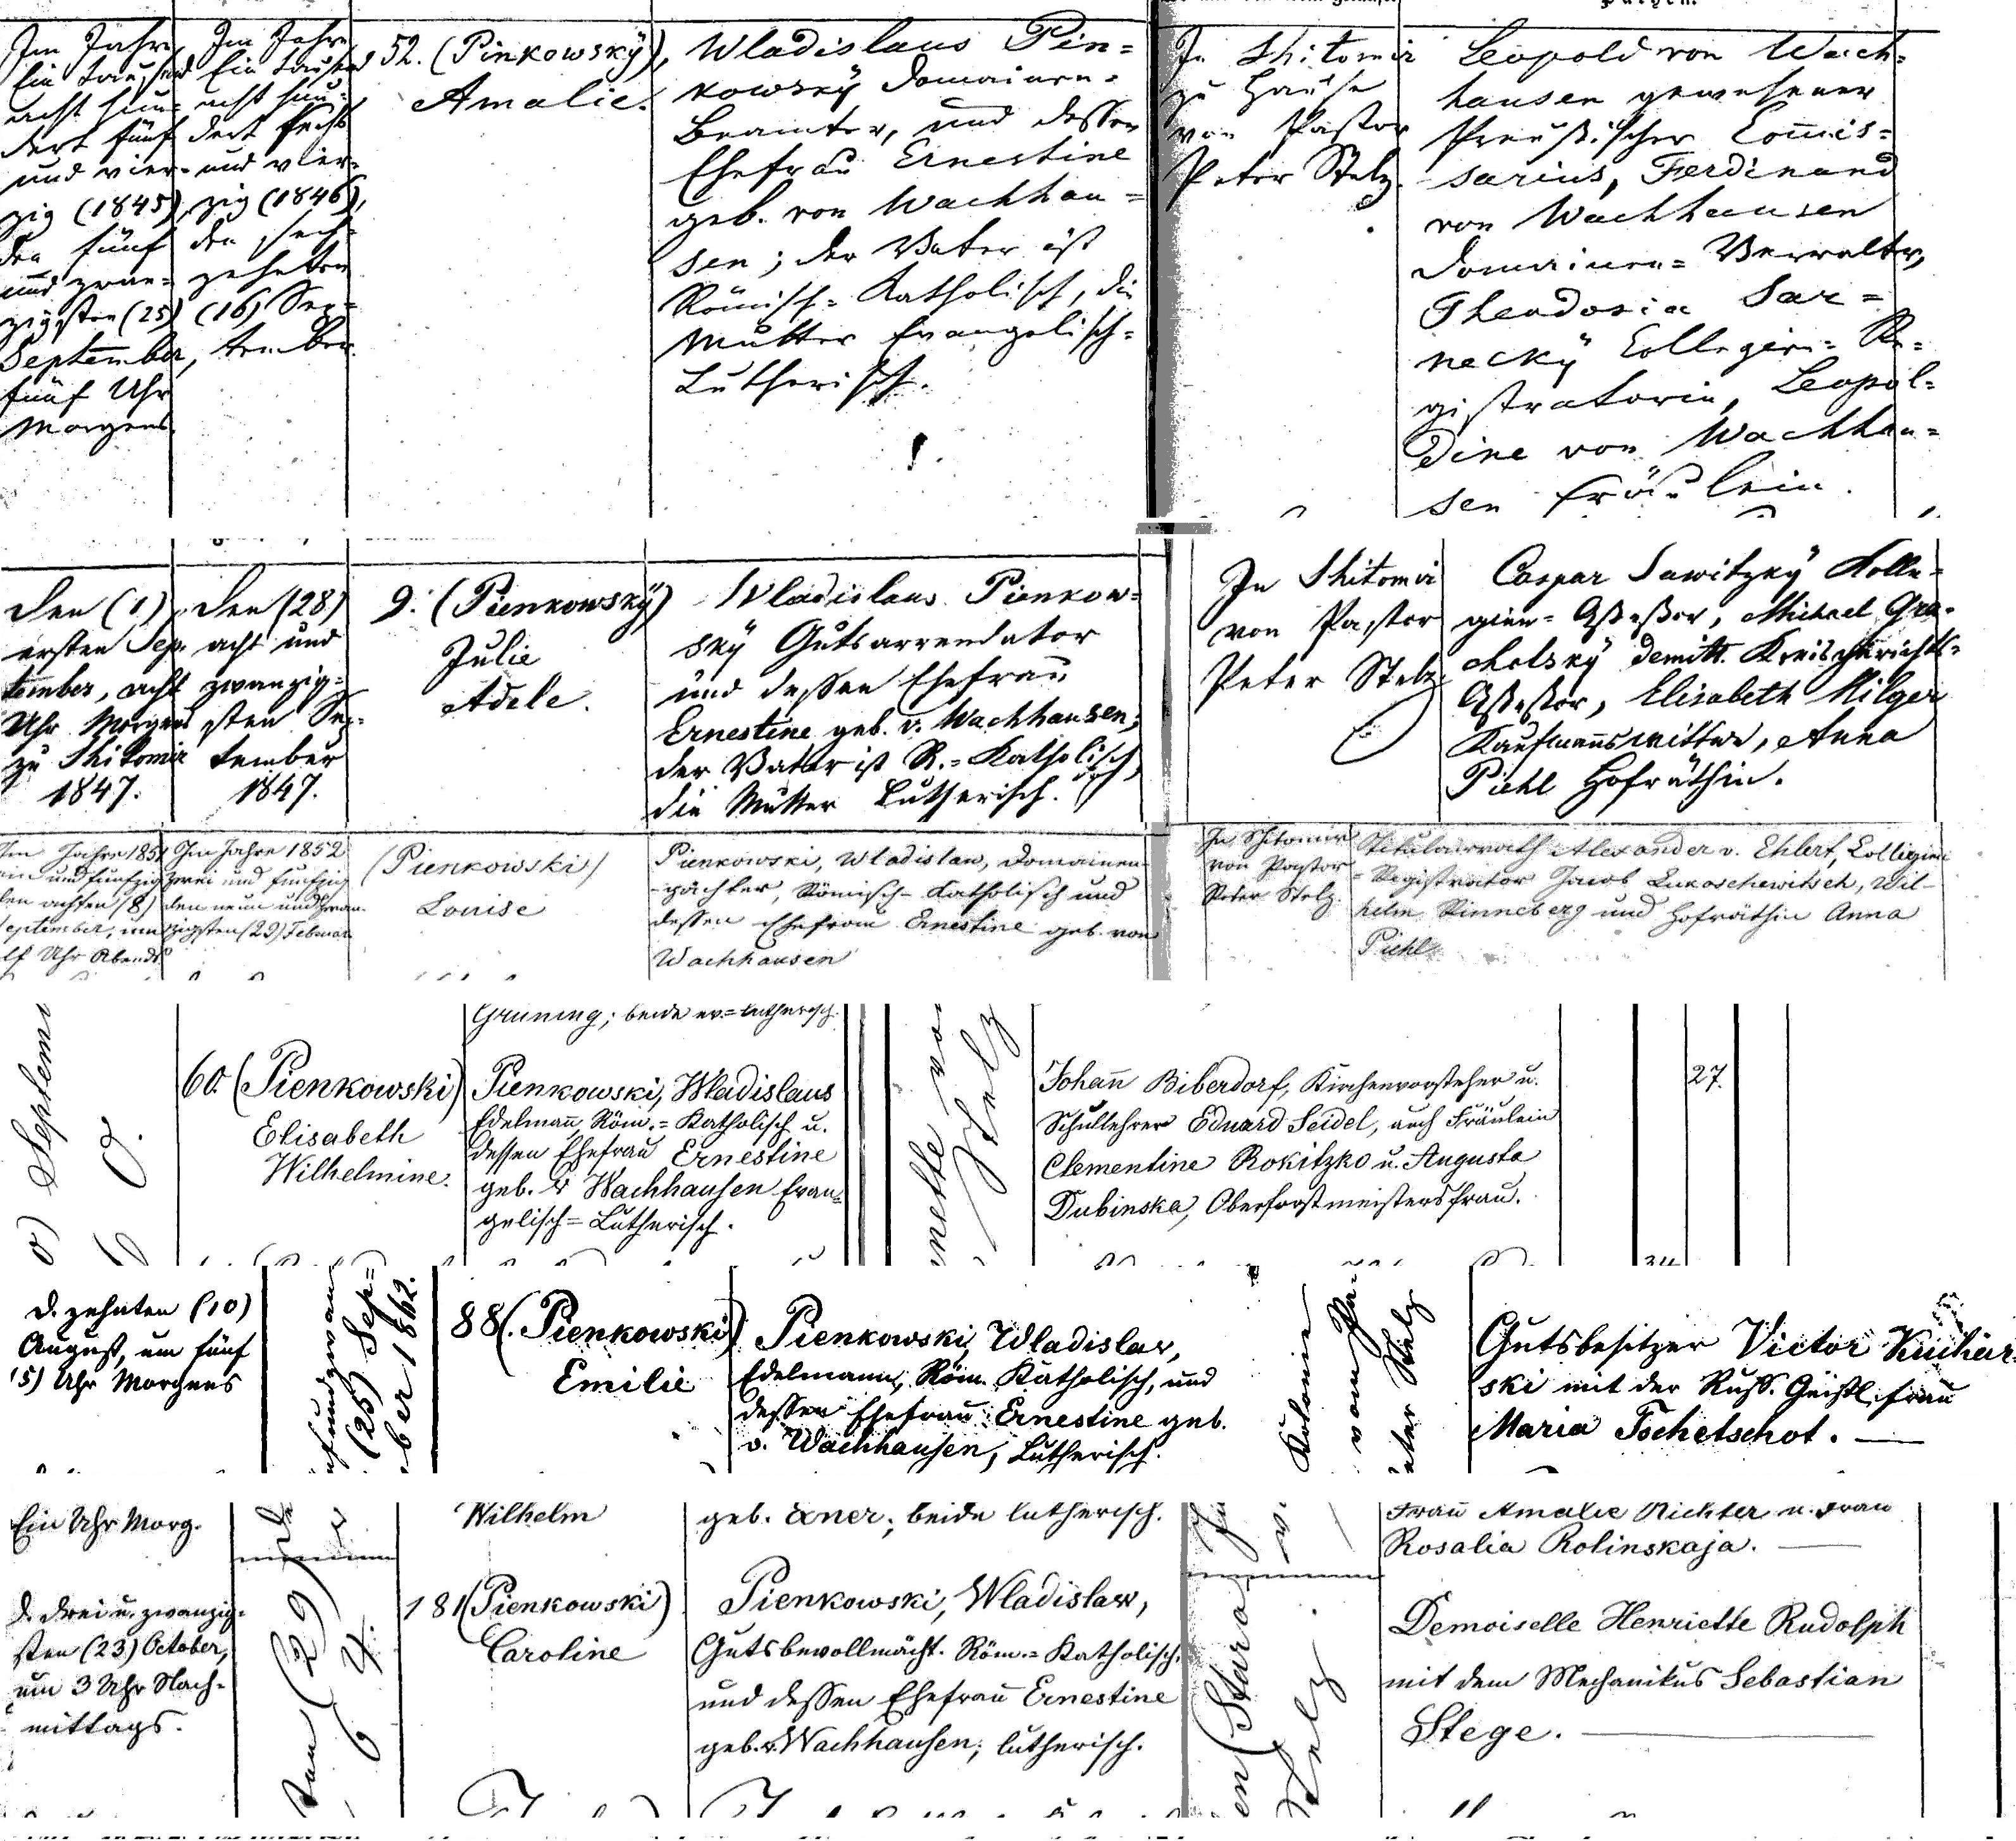 Im Jahre
Ein tausend
acht hun-
dert fünf
und vier-
zig (1845),
den fünf
und zwan-
zigsten (25)
September,
fünf Uhr
Morgens.
Im Jahre
Ein tausend
acht hun-
dert sechs
und vier-
zig (1846),
den sech-
zehnten
(16) Sep-
tember.
52. (Pinkowskÿ),
Amalie.
Wladislaus Pin=
kowskÿ Domainen-
Beamter, und dessen
Ehefrau Ernestine
geb. von Wachhau=
sen; der Vater ist
Römisch=Katholisch, die
Mutter Evangelisch=
Lutherisch.
In Shitomir
zu Hause
von Pastor
Peter Stelz.
Leopold von Wach=
hausen gewesener
Preußischer Com̄is=
sarius, Ferdinand
von Wachhausen
Domainen=Verwalter,
Theodosia Sar=
neckÿ Collegien=Re=
gistratorin, Leopol=
dine von Wachhau=
sen Fräulein.
Den (1)
ersten Sep-
tember, acht
Uhr Morgens
zu Shitomir
1847.
Den (28)
acht und
zwanzig-
sten Sep-
tember
1847.
9. (Pienkowskÿ)
Julie
Adele.
Wladislaus Pienkow=
skÿ Gutsarrendator
und dessen Ehefrau
Ernestine geb. v. Wachhausen;
der Vater ist R.=Katholisch,
die Mutter Lutherisch.
In Shitomir
von Pastor
Peter Stelz
Caspar Sawitzkÿ Kolle=
gien=Aßeßor, Michael Gra-
cholskÿ demitt. Kreisgerichts=
Aßeßor, Elisabeth Hilger
Kaufmannswittwe, Anna
Piehl Hofräthin.
Im Jahre 1851
ein und fünfzig
den achten (8)
September, um
elf Uhr Abends
Im Jahre 1852
zwei und fünfzig
den neun und zwan-
zigsten (29) Februar
(Pienkowski)
Louise
Pienkowski, Wladislaw, Domainen-
-pächter, Römisch-Katholisch und
dessen Ehefrau Ernestine geb. von
Wachhausen
In Shitomir
von Pastor
Peter Stelz.
Titulairrath Alexander v. Ehlert, Collegien
=Registrator Jacob Lukoschewitsch, Wil-
helm Pinneberg und Hofräthin Anna
Piehl
Septem
Grüning; beide ev.=lutherisch.
60. (Pienkowski)
Elisabeth
Wilhelmine.
Pienkowski, Wladislaus
Edelman̄, Röm.=Katholisch u.
dessen Ehefrau Ernestine
geb. v Wachhausen Evan=
gelisch=Lutherisch.
Stelz
Johan̄ Biberdorf, Kirchenvorsteher u.
Schullehrer Eduard Seidel, auch Fräulein
Clementine Rokitzko u. Augusta
Dubinska, Oberforstmeistersfrau.
27.
d. zehnten (10)
August, um fünf
(5) Uhr Morgens
fundzwan
(25) Sep=
ber 1862.
88 (Pienkowski)
Emilie
Pienkowski, Wladislav,
Edelmann, Röm. Katholisch, und
dessen Ehefrau Ernestine geb.
v. Wachhausen, Lutherisch.
Kolonie
vom Pa
eter Stelz
Gutsbesitzer Victor Kuchar
ski mit der Russ. Geistl. frau
Maria Tschetschot.
Ein Uhr Morg.
Wilhelm
geb. Exner; beide lutherisch.
Frau Amalie Richter u. Frau
Rosalia Rolinskaja.
d. drei u. zwanzig-
sten (23) October,
um 3 Uhr Nach-
mittags.
(29)
181 (Pienkowski)
Caroline
Pienkowski, Wladislaw,
Gutsbevollmächt. Röm.=Katholisch,
und dessen Ehefrau Ernestine
geb. v. Wachhausen; lutherisch.
Stelz
Demoiselle Henriette Rudolph
mit dem Mechanikus Sebastian
Stege.